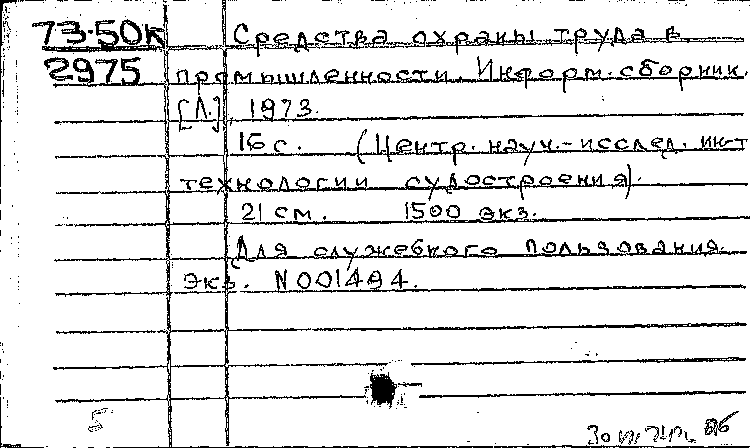 73-50к Средства охраны труда в
2975 промышленности. Информ. сборник.
[Л.], 1973.
16 с. (Центр. науч.-исслед. ин-т
технологии судостроения).
21 см. 1500 экз.
Для служебного пользования.
Экз. N 001494.
5